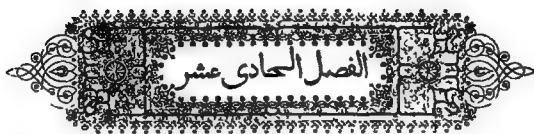 الفصل الحادى عشر